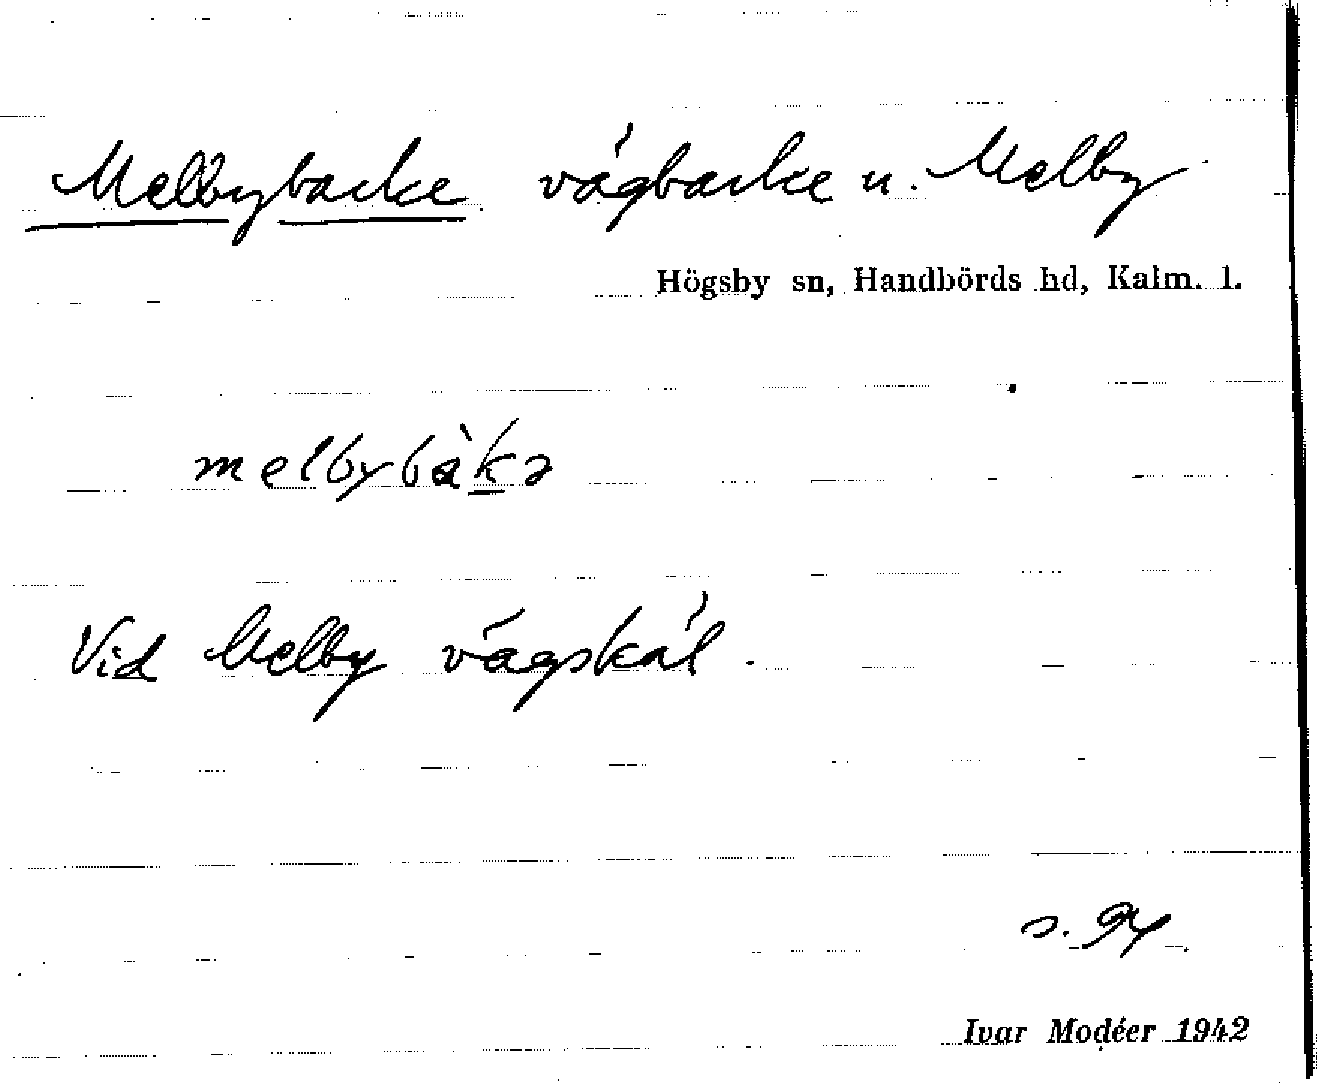 Melbybacke vägbacke u. Melby
Högsby sn, Handbörds hd, Kalm. l.
melbybàkə
Vid Melby vägskäl.
s. 94
Ivar Modéer 1942